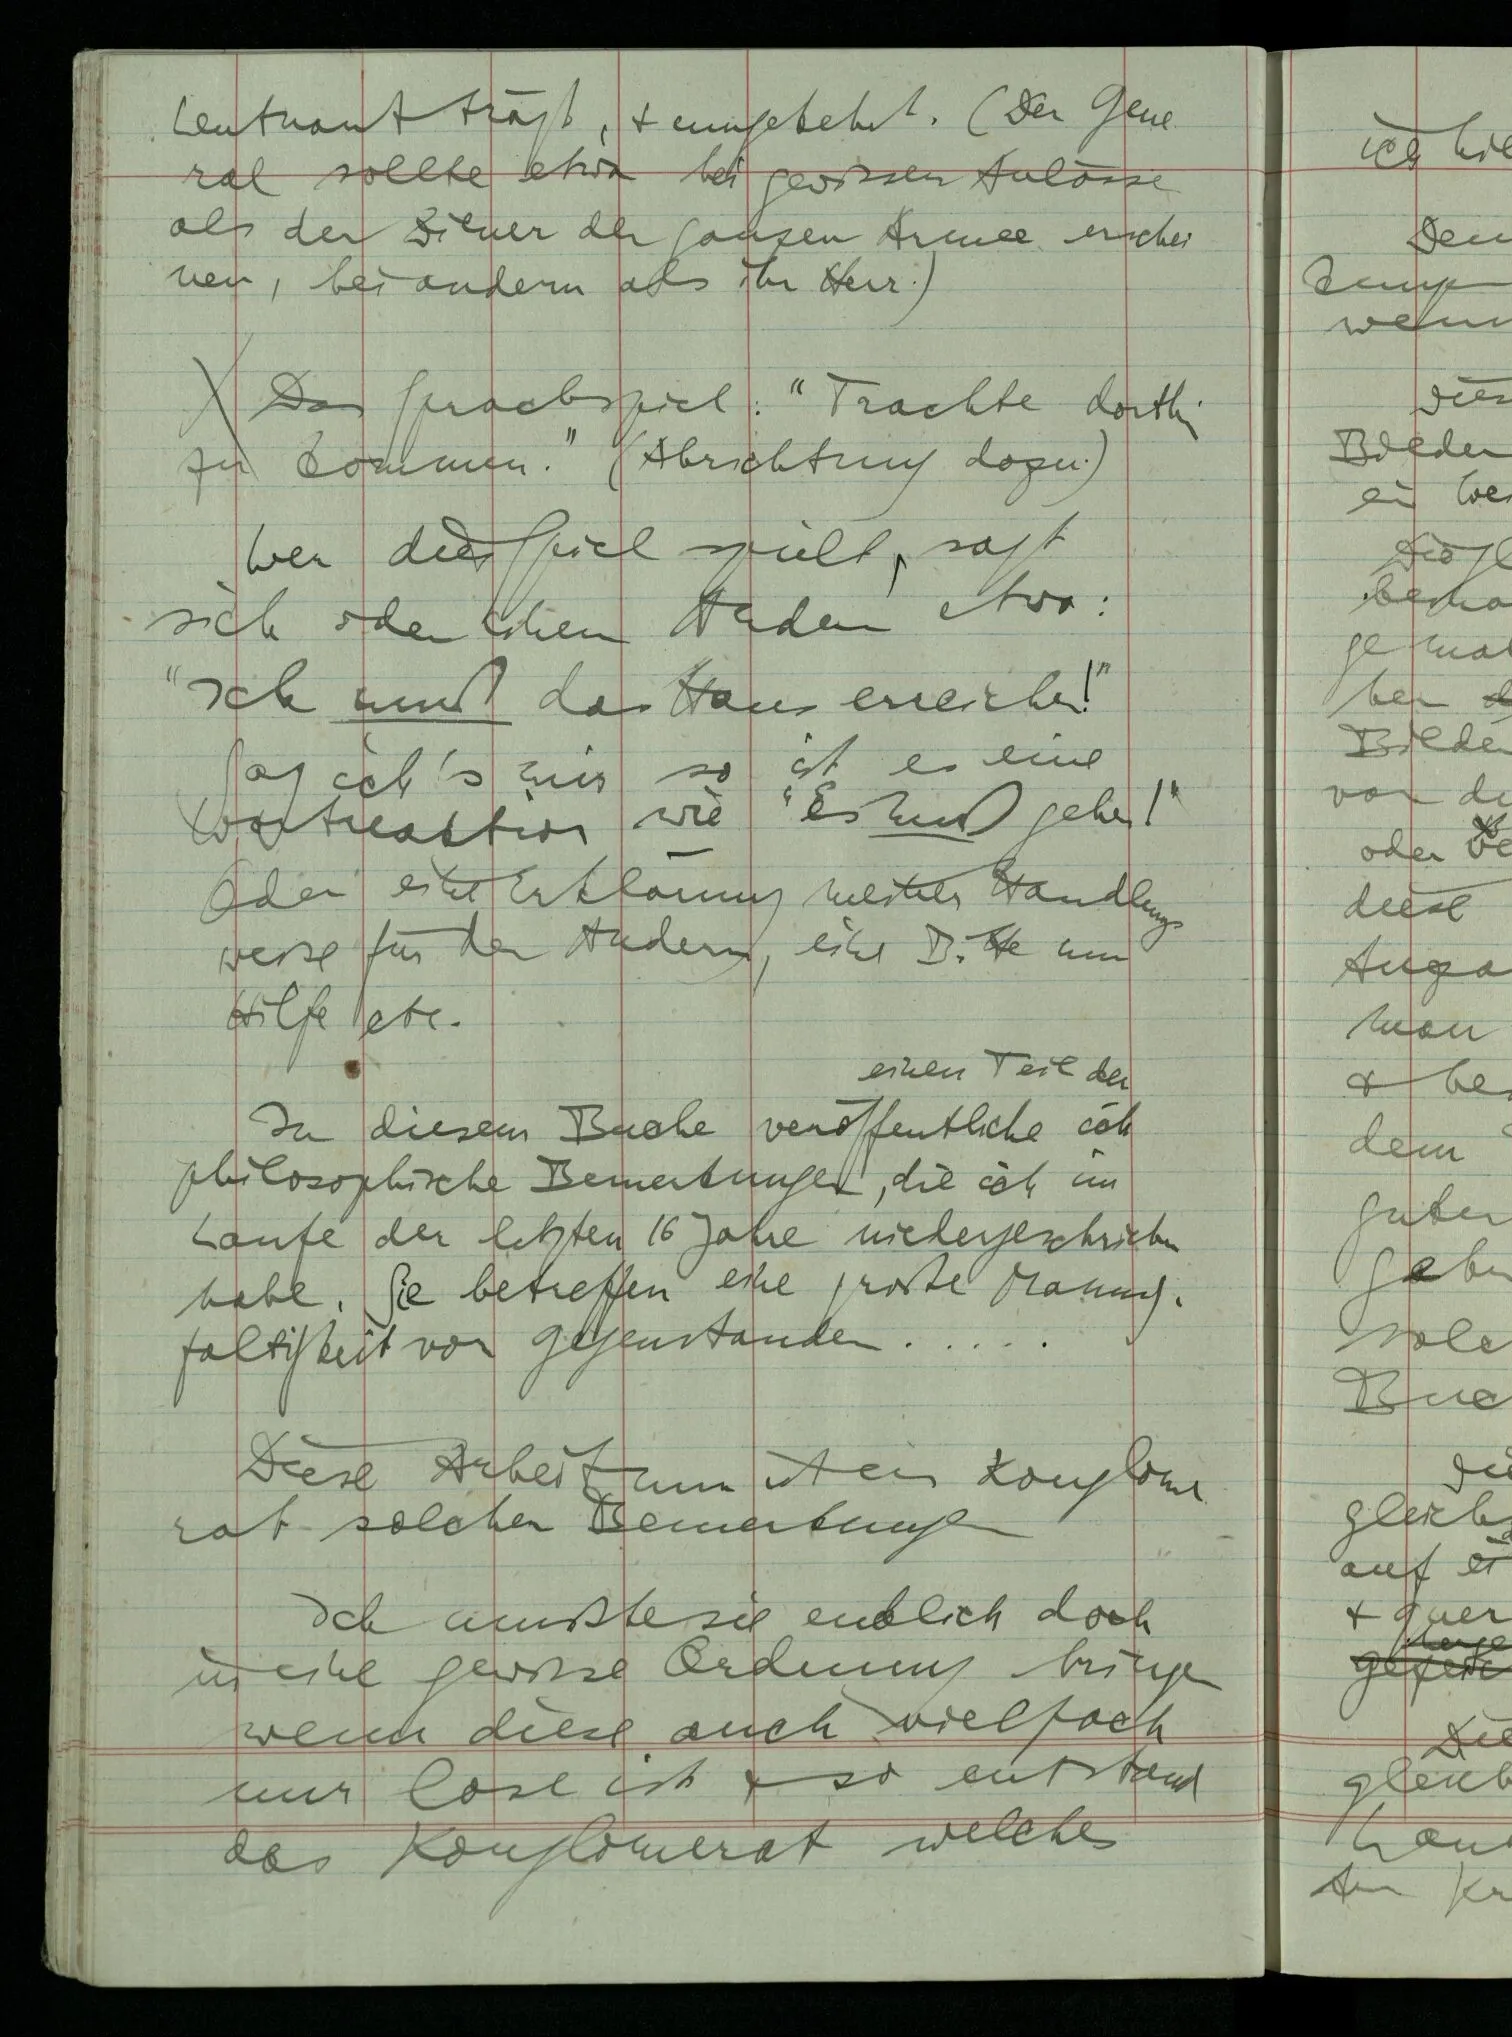 Leutnant trägt, + umgekehrt. (Der Gene
ral sollte etwa bei gewissen Anlässe
als der Diener der ganzen Armee erschei
nen, bei andern als ihr Herr.)
X Das Sprachspiel: "Trachte dorthin
zu kommen." (Abrichtung dazu.)
Wer dies Spiel spielt, sagt
sich oder einem Andern etwa:
"Ich muß das Haus erreichen!"
Sag ich's mir so ist es eine
Wortreaktion wie "Es muß gehen!"
Oder eine Erklärung meiner Handlungs
weise für den Andern, eine Bitte um
Hilfe etc.
einen Teil der
In diesem Buche veröffentliche ich
philosophische Bemerkungen, die ich im
Laufe der letzten 16 Jahre niedergeschrieben
habe. Sie betreffen eine große Mannig-
faltigkeit von Gegenständen . . . . .
Diese Arbeit nun ist ein Konglome
rat solcher Bemerkungen
Ich mußte sie endlich doch
in eine gewisse Ordnung bringen
wenn diese auch vielfach
nur lose ist + so entstand
das Konglomerat welches
ich
oder
diese
man
dem